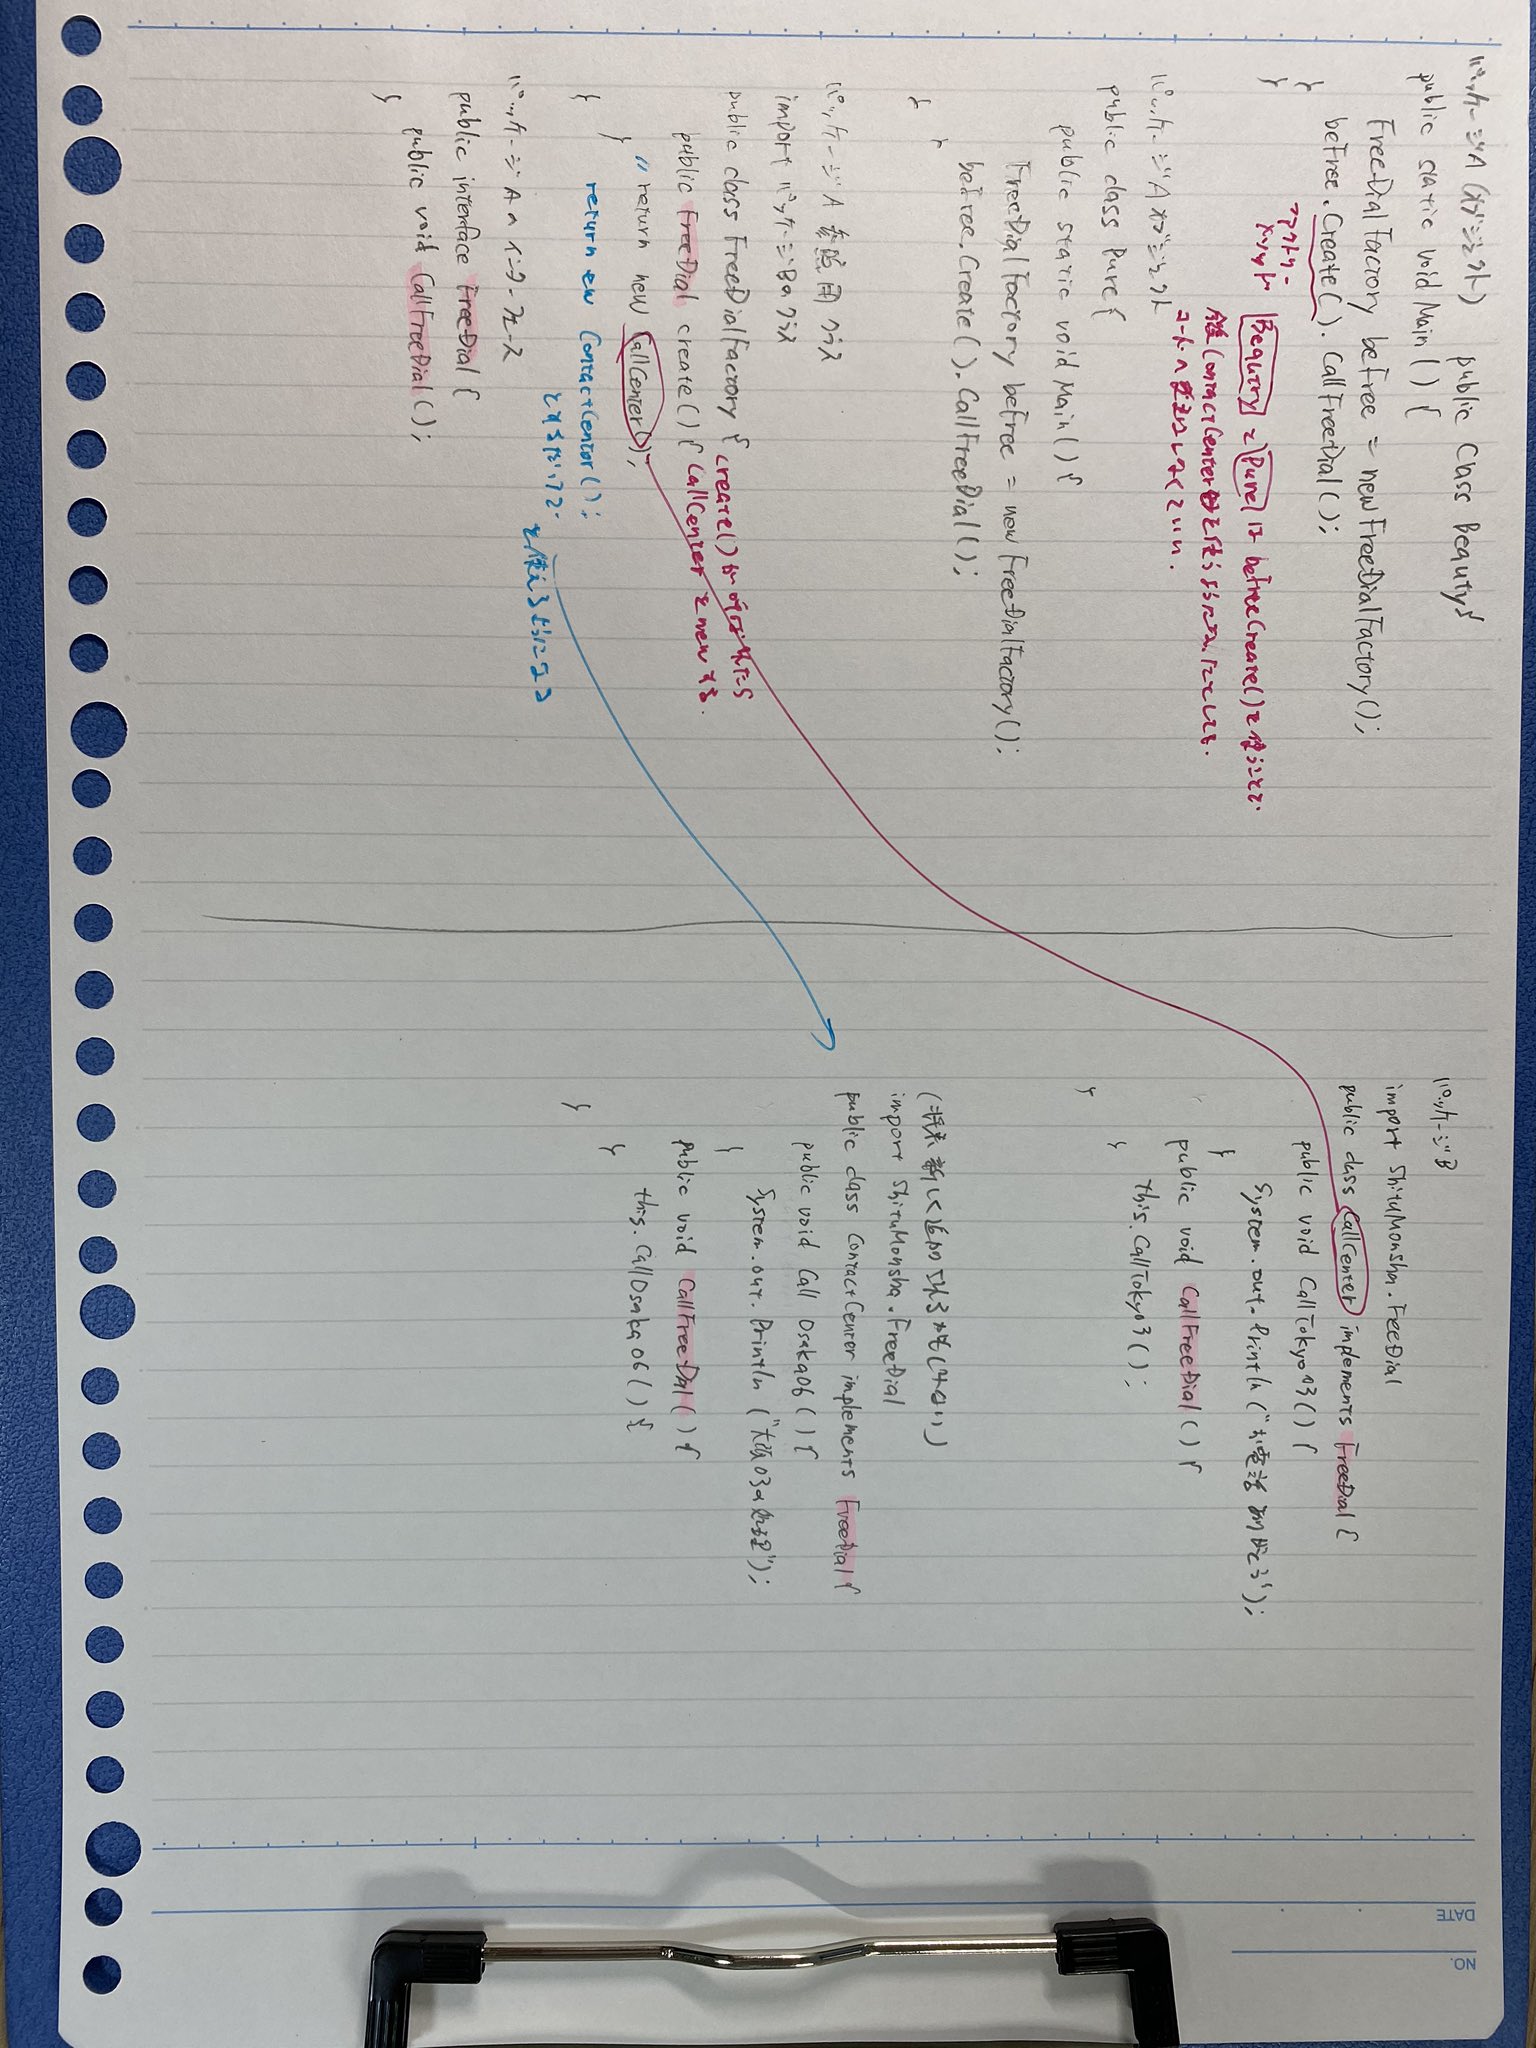 パッケージA (オブジェクト) public Class Beauty{
public static void Main() {
FreeDialFactory beFree = new FreeDialFactory();
beFree.Create().CallFreeDial();
}
}
ファクトリー
メソッド
Beautry と Pure は beFreeCreate()を使うことで
今後ContactCenterを使うようになったとしても
コードへ変更はしなくていい.
パッケージA オブジェクト
public class Pure{
public static void Main(){
FreeDialFactory beFree = new FreeDialFactory();
beFree.Create().CallFreeDial();
}
}
パッケージA 参照用クラス
import パッケージBのクラス
public class FreeDialFactory {
create()が呼ばれたら
public FreeDial create(){
CallCenterをnewする.
// return new CallCenter();
}
return ew ContactCenter();
}
とするだけで
を使えるようになる
パッケージAのインターフェース
public interface FreeDial {
public void CallFreeDial();
}
パッケージB
import ShituMonsha.FeeDial
public class CallCenter implements FreeDial {
public void CallTokyo03(){
System.out.Println("お電話ありがとう");
}
public void CallFreeDial(){
this.CallTokyo3();
}
}
(将来新しく追加されるかもしれない)
import ShituMonsha.FreeDial
public class ContactCenter implements FreeDial{
public void Call Osaka06(){
System.out.Println("大阪03の処理");
}
public void CallFreeDal(){
this.CallOsaka06(){
}
}
NO.
DATE